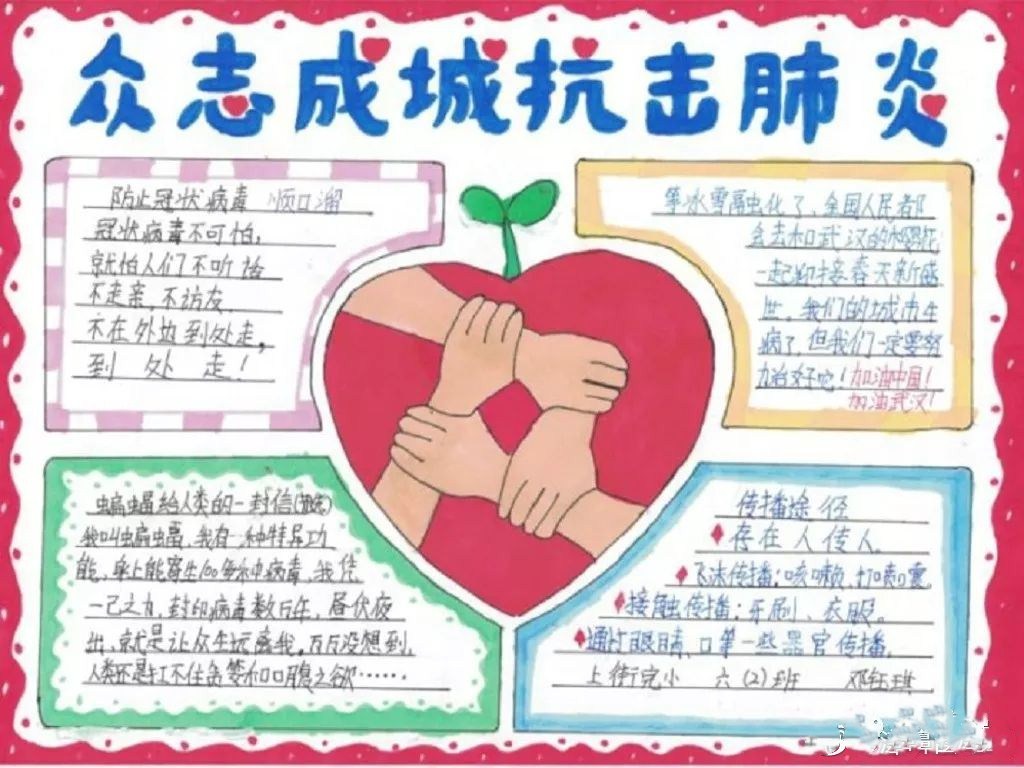 众志成城抗击肺炎
防止冠状病毒 顺口溜
冠状病毒不可怕,
就怕人们不听话
不走亲,不访友
不在外边到处走,
到处走!
等冰雪融化了、全国人民都
会去和武汉的樱花
一起迎接春天新的
世。我们的城市生
病了,但我们一定要努
力治好它!加油中国!
加油武汉!
蝙蝠给人类的一封信(节选)
我叫蝙蝠,我有一种特异功
能,身上能寄生100多种病毒,我凭
一己之力,封印病毒数万年,昼伏夜
出、就是让众生远离我,万万没想到,
人类还是扛不住负婪和口腹之欲……
传播途径
存在人传人.
飞沫传播:咳嗽、打喷嚏
接触传播:牙刷、衣服。
通过眼睛、口鼻一些器官传播.
上街完小 六(2)班 邓钰琪